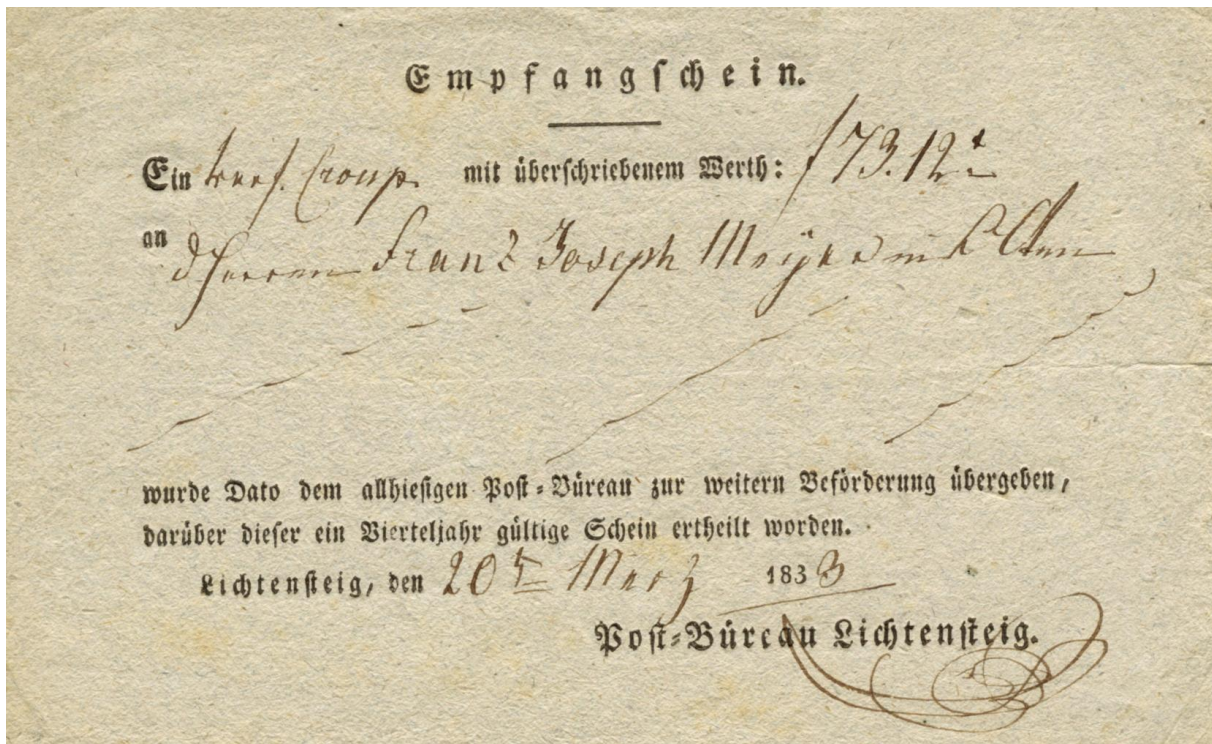 Empfangschein.
Ein vers. Group mit überschriebenem Werth: f 73.12 x
an
d Herren Franz Joseph Meÿer in Olten
wurde Dato dem allhiesigen Post-Büreau zur weitern Beförderung übergeben,
darüber dieser ein Vierteljahr gültige Schein ertheilt worden.
Lichtensteig, den 20t Merz 1833
Post-Büreau Lichtensteig.